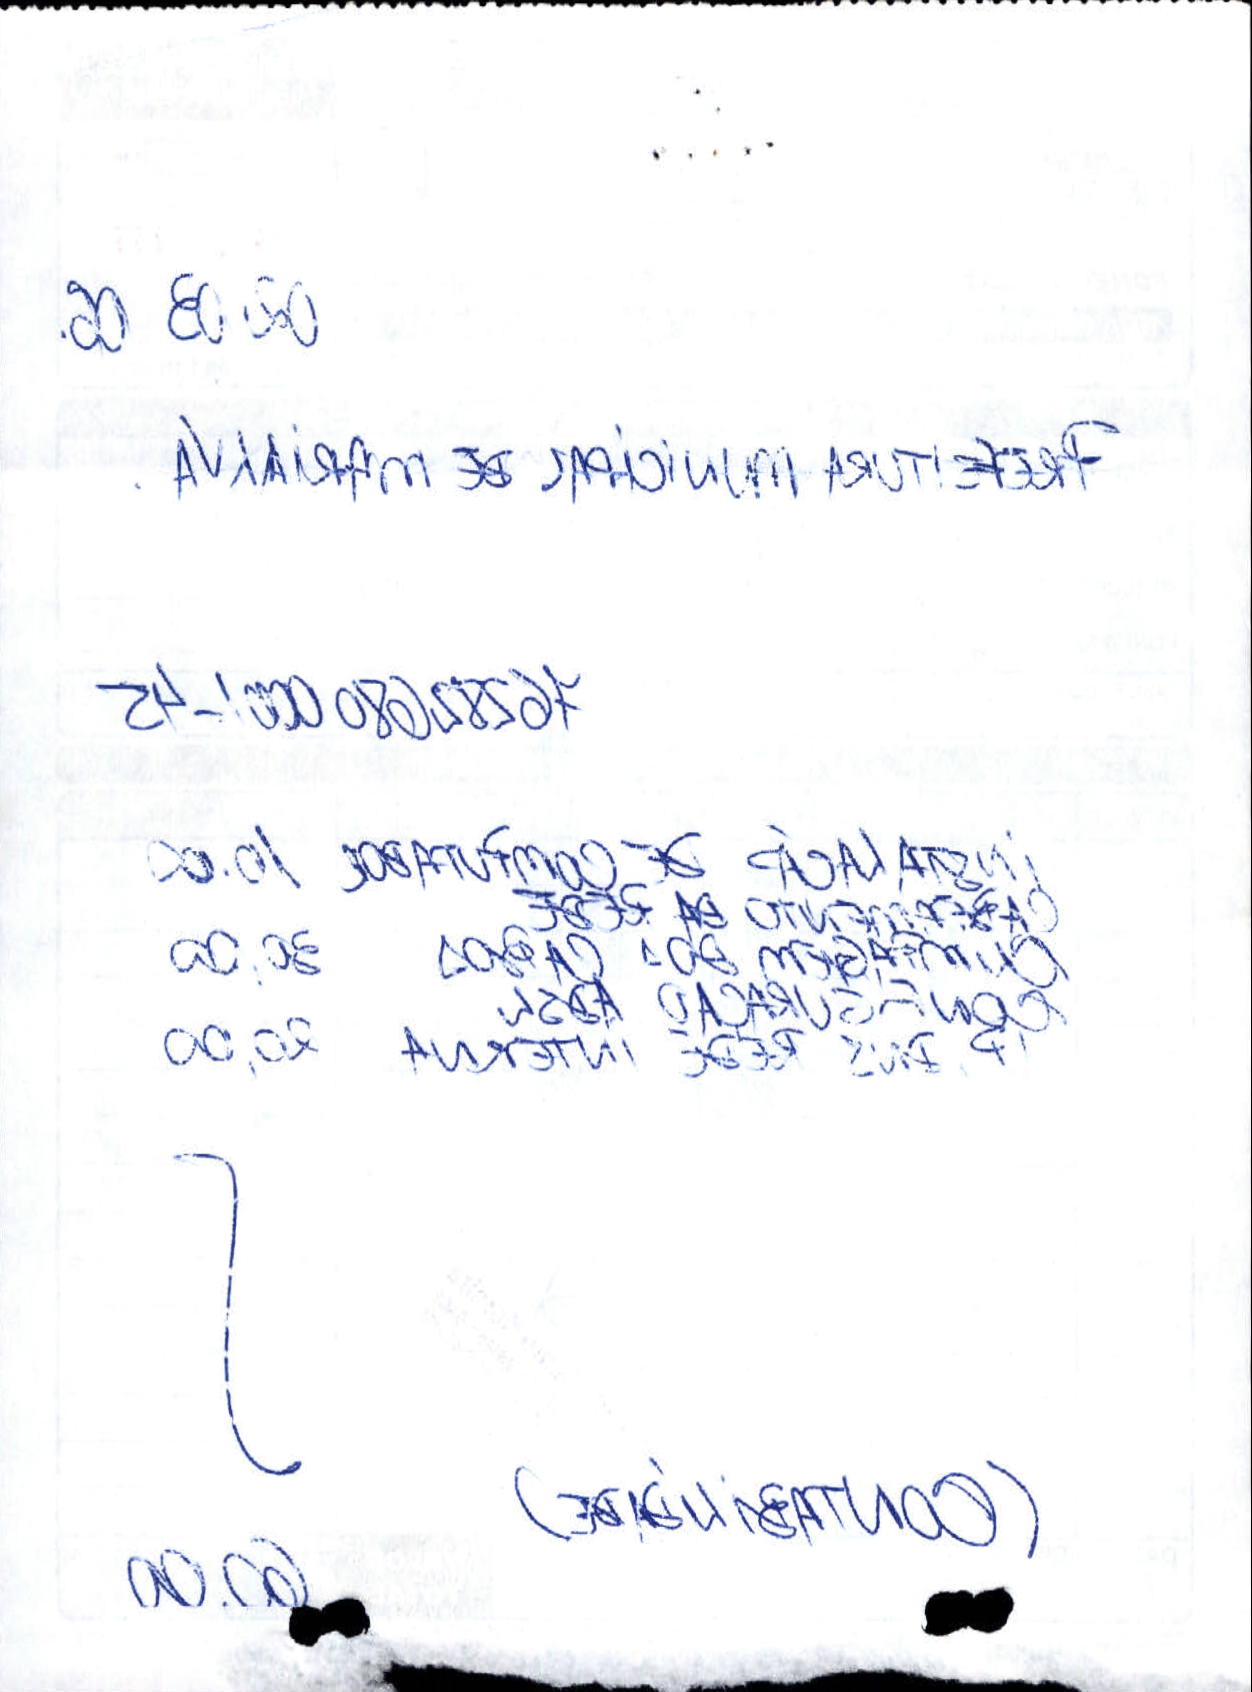 02.03 06.
PREFEITURA MUNICIPAL DE MARIALVA.
76282680 0001-45
INSTALAÇÃO DE COMPUTADOR 10.00
CABEAMENTO DA REDE
CLIMPAGEM DOS CABOS 30,00
CONFIGURAÇÃO ADSL
IP, DNS REDE INTERNA 20,00
(CONTABILIDADE)
60.00